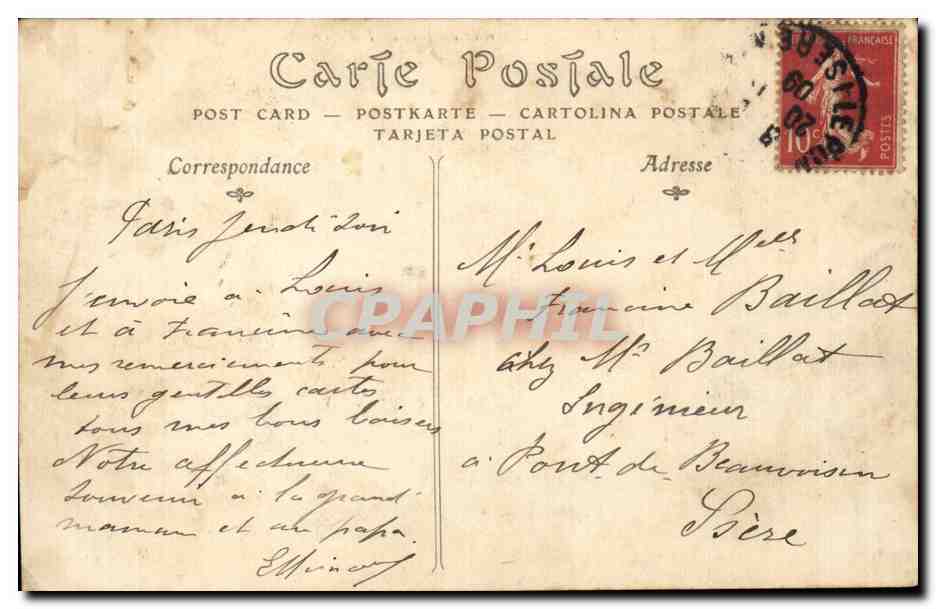 Carte Postale
POST CARD — POSTKARTE — CARTOLINA POSTALE
TARJETA POSTAL
Correspondance
Paris Jeudi soir
J'envoie à Louis
et à Francine avec
mes remerciements pour
leurs gentilles cartes
tous mes bons baisers
Notre affectueux
souvenir à la grand
maman et au papa.
Adresse
Mr Louis et Melle
Francine Baillat
chez Mr Baillat
Ingénieur
à Pont de Beauvoisin
Isère
FRANÇAISE
POSTES
10c
20
09
CPAPHIL